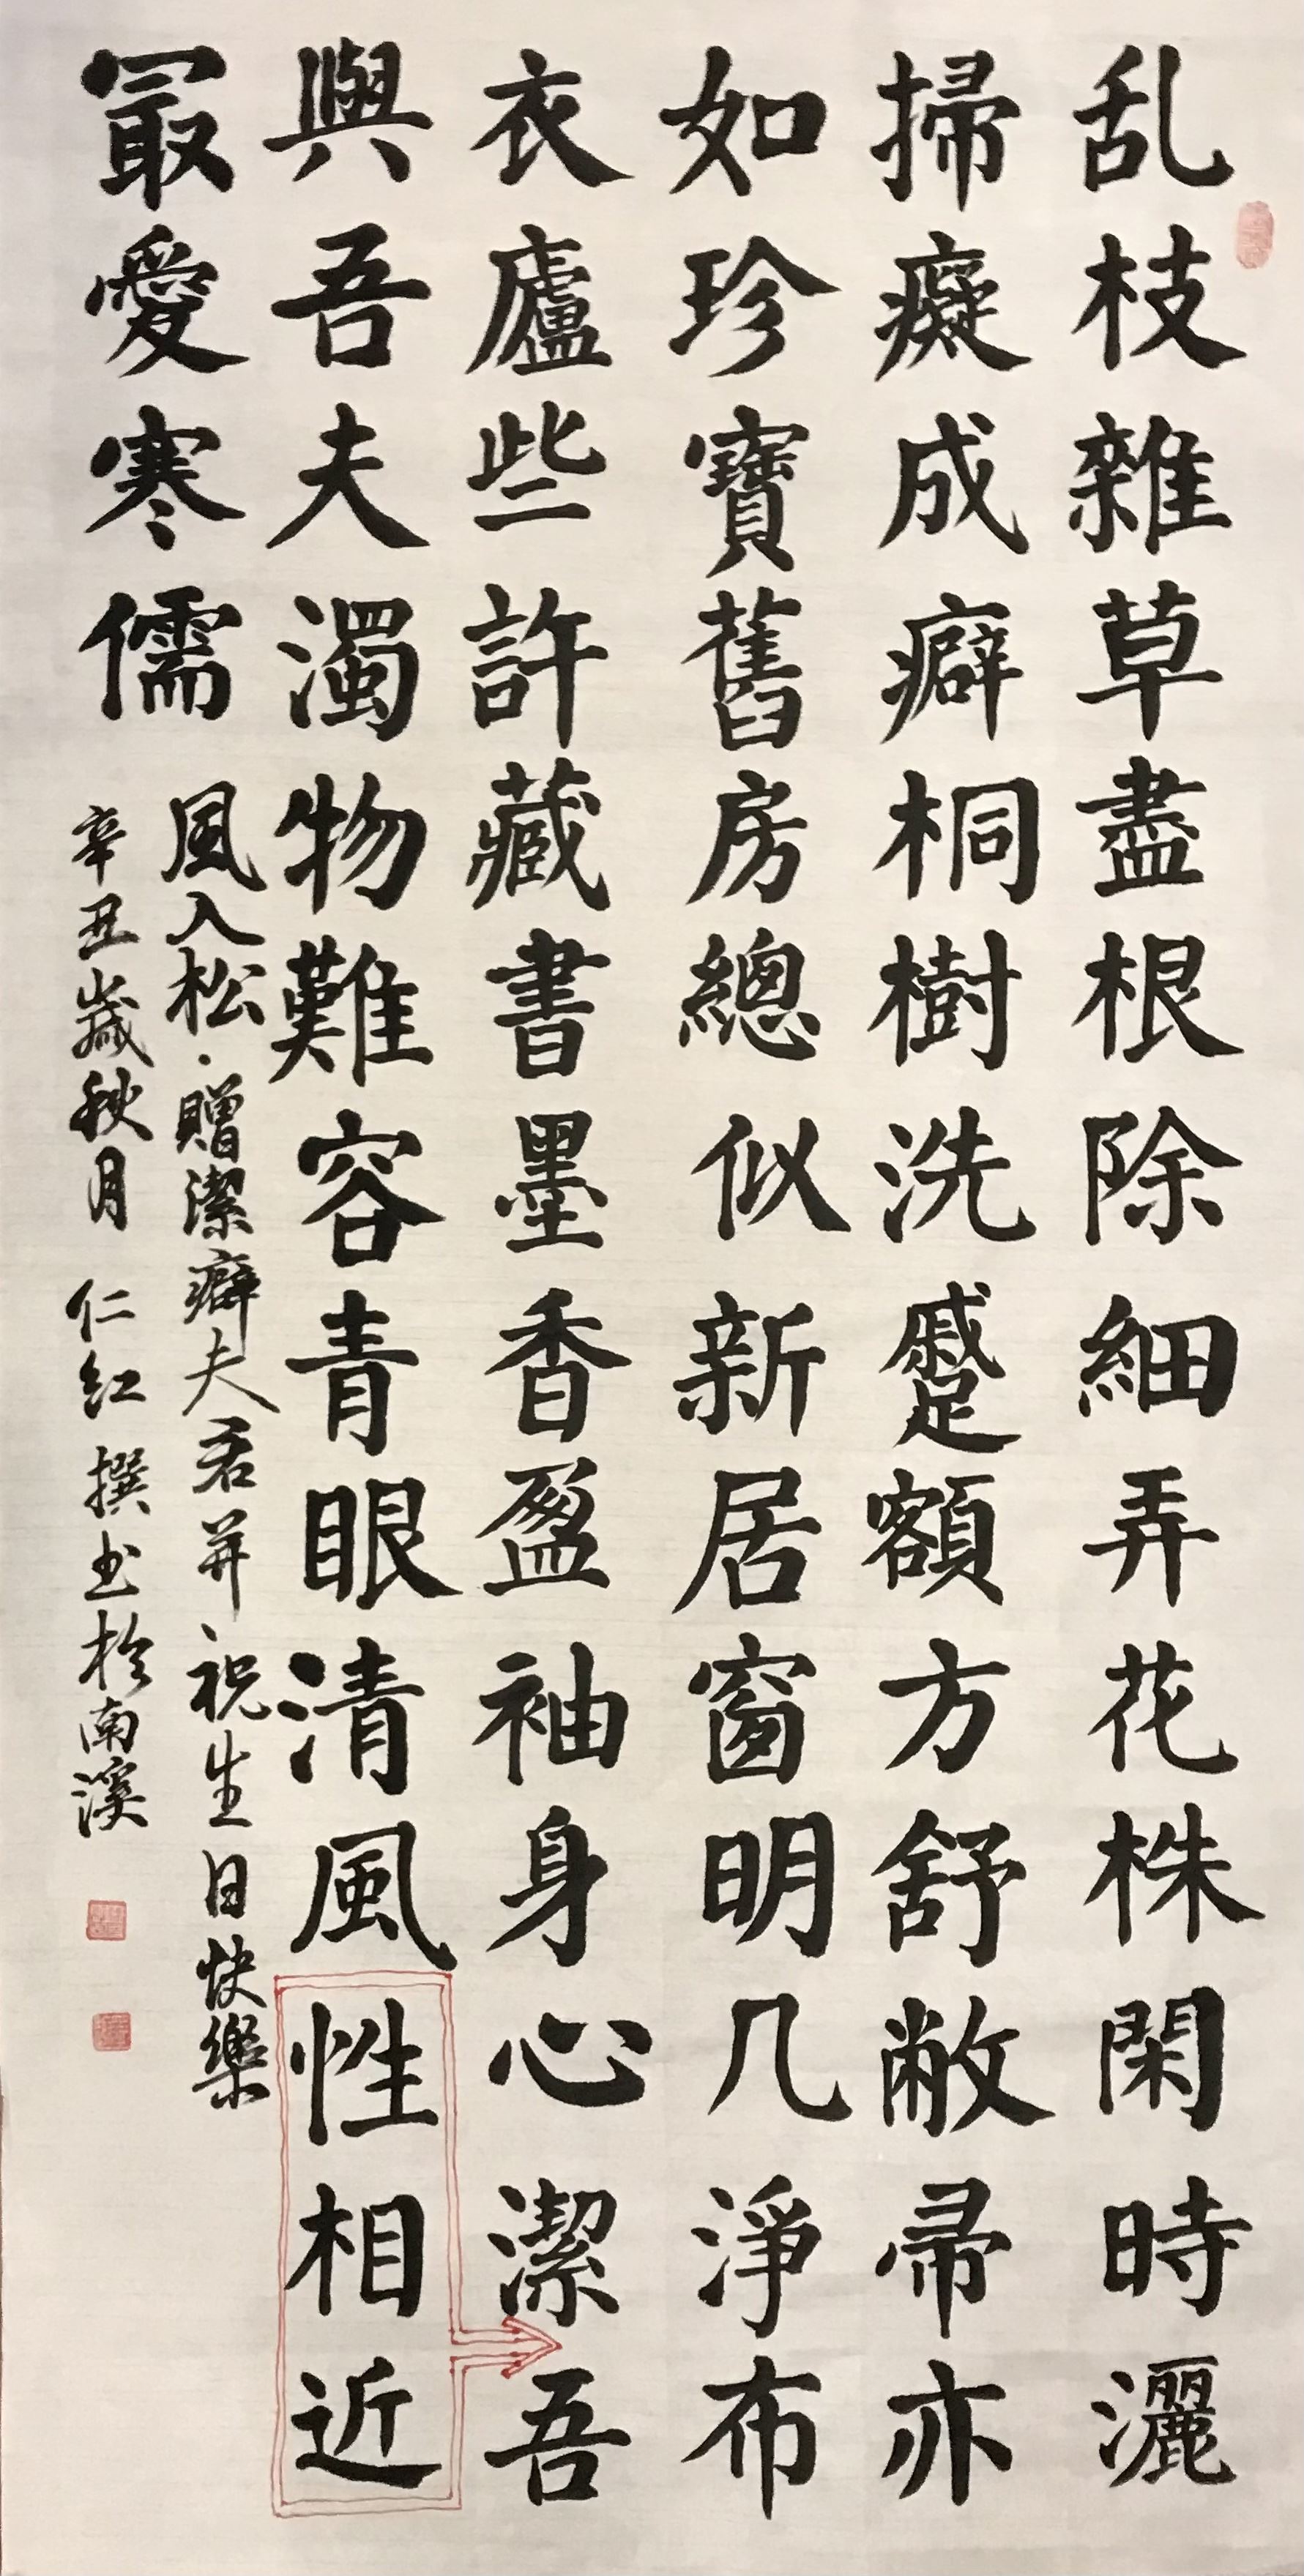 乱枝雜草盡根除細弄花株閑時灑
掃癡成癖桐樹洗蹙額方舒敝帚亦
如珍寶舊房總似新居窗明几淨布
衣廬些許藏書墨香盈袖身心潔吾
與吾夫濁物難容青眼清風性相近
最愛寒儒
風入松·贈潔癖夫君并祝生日快樂
辛丑歲秋月 仁紅撰书於南溪